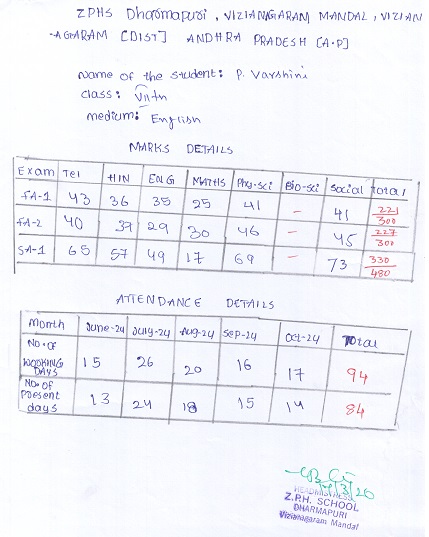 ZPHS Dharmapuri, VIZIANAGARAM MANDAL, VIZIAN
-AGARAM [DIST] ANDHRA PRADESH [A.P]
Name of the student: P. Varshini
class: VIIth
medium: English
MARKS DETAILS
Exam Tel HIN ENG MATHS Phy-sci Bio-sci Social total
FA-1 43 36 35 25 41 - 41 221/300
FA-2 40 37 29 30 46 - 45 227/300
SA-1 65 57 49 17 69 - 73 330/480
ATTENDANCE DETAILS
Month June-24 July-24 Aug-24 Sep-24 Oct-24 Total
NO. OF WORKING DAYS 15 26 20 16 17 94
NO. of Present days 13 24 18 15 14 84
HEADMISTRESS
Z.P.H. SCHOOL
DHARMAPURI
Vizianagaram Mandal